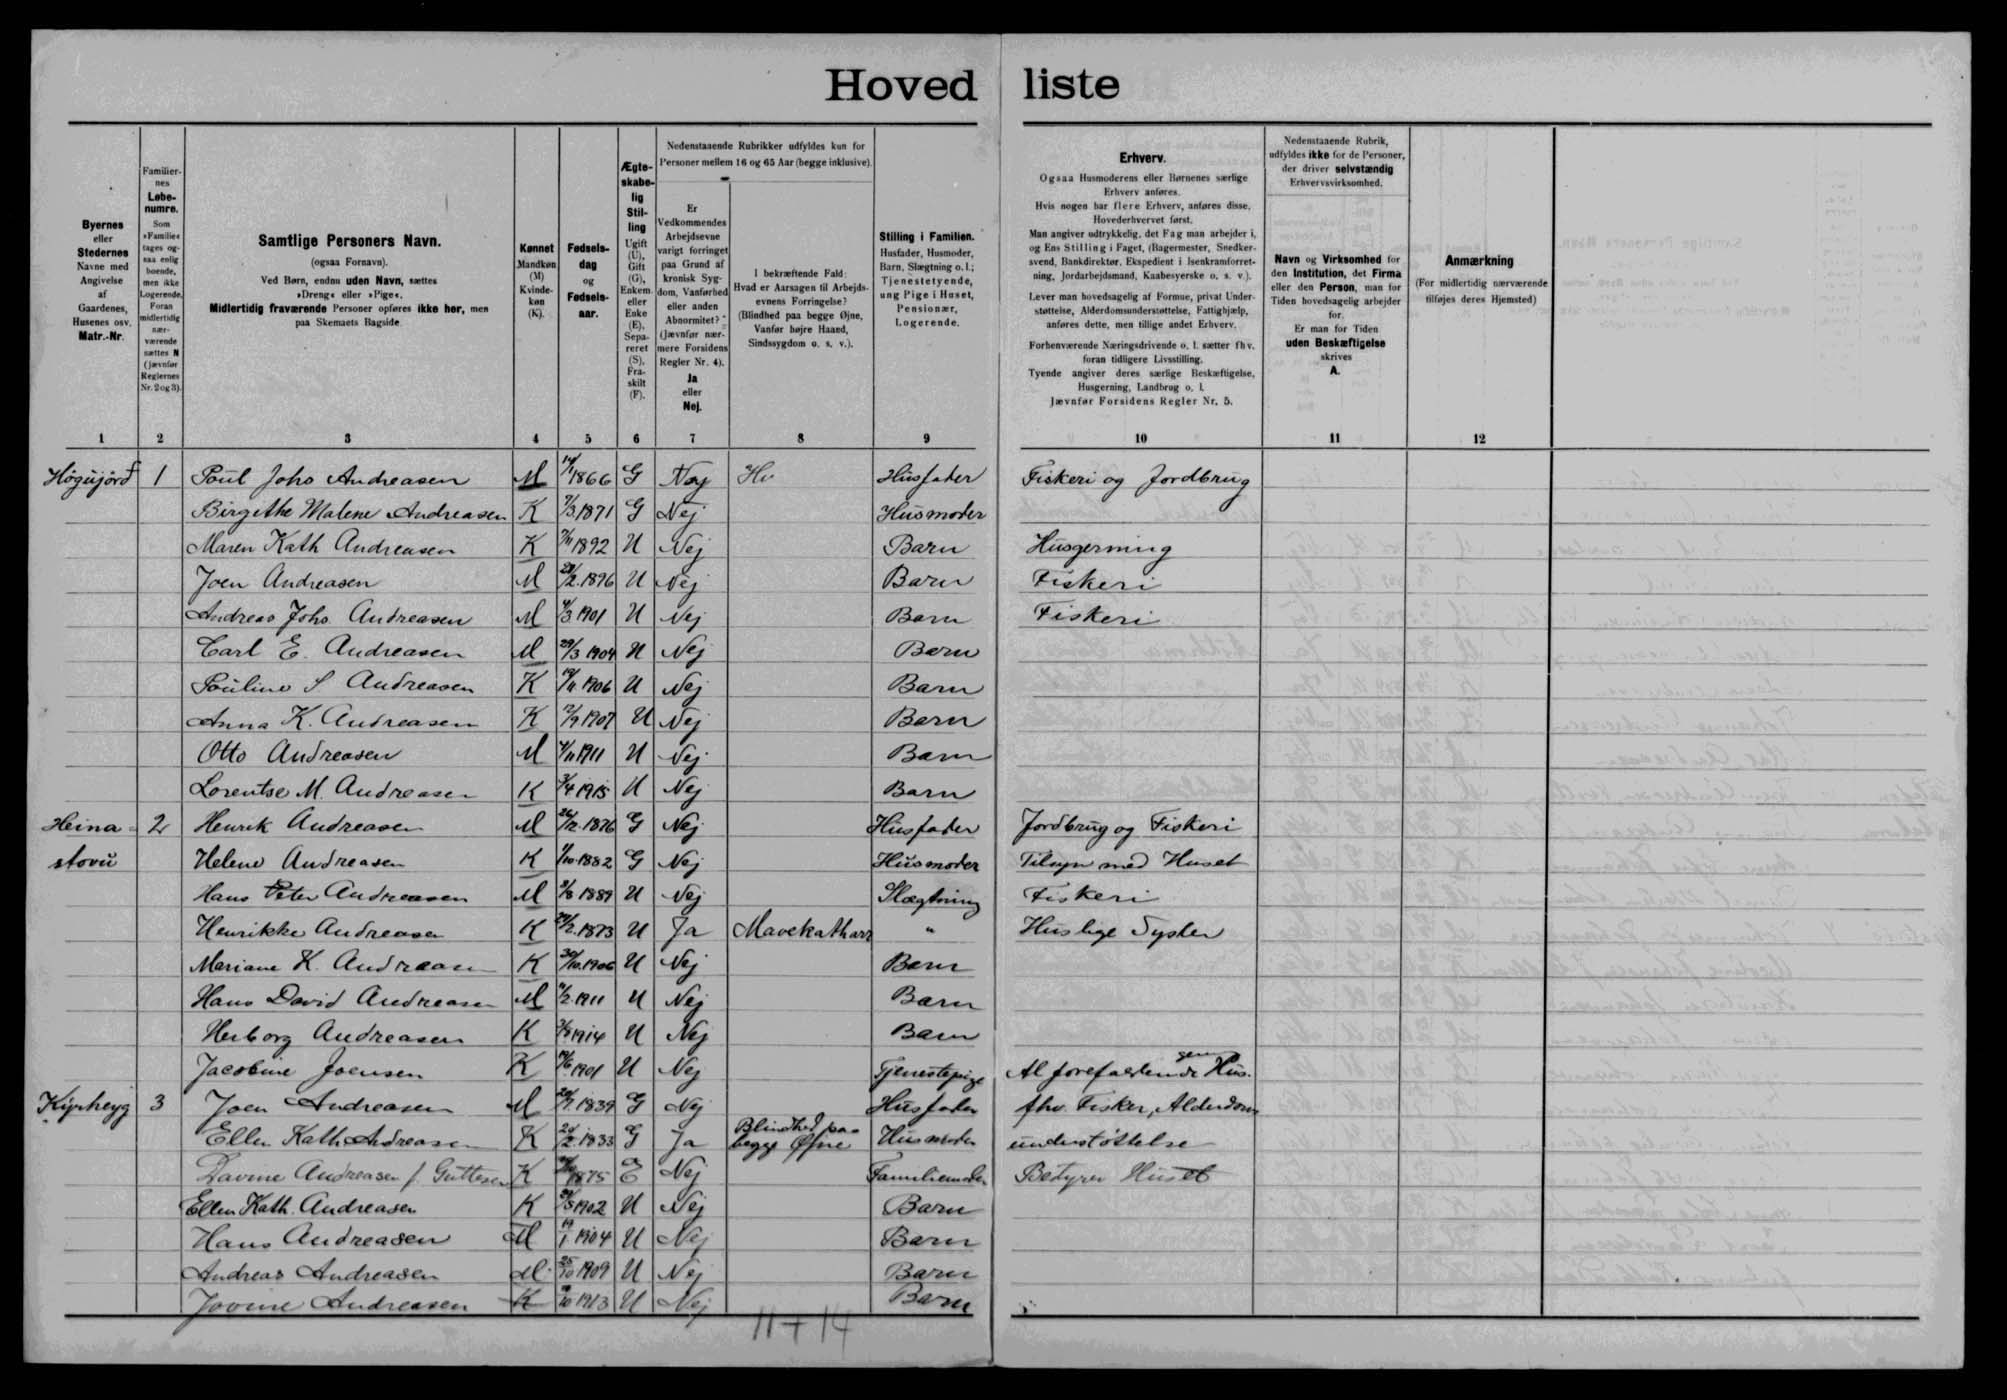 Hoved liste
Byernes
eller
Stedernes
Navne med
Angivelse
af
Gaardenes,
Husenes osv.
Matr.-Nr.
1
Familier-
nes
Løbe-
numre.
Som
»Familie«
tages og-
saa enlig
boende,
men ikke
Logerende.
Foran
midlertidig
nær-
værende
sættes N
(jævnfør
Reglernes
Nr. 2 og 3).
2
Samtlige Personers Navn.
(ogsaa Fornavn).
Ved Børn, endnu uden Navn, sættes
»Dreng« eller »Pige«.
Midlertidig fraværende Personer opføres ikke her, men
paa Skemaets Bagside.
3
Kønnet
Mandkøn
(M)
Kvinde-
køn
(K).
4
Fødsels-
dag
og
Fødsels-
aar.
5
Ægte-
skabe-
lig
Stil-
ling
Ugift
(U),
Gift
(G),
Enkem.
eller
Enke
(E),
Sepa-
reret
(S),
Fra-
skilt
(F).
6
Nedenstaaende Rubrikker udfyldes kun for
Personer mellem 16 og 65 Aar (begge inklusive).
Er
Vedkommendes
Arbejdsevne
varigt forringet
paa Grund af
kronisk Syg-
dom, Vanførhed
eller anden
Abnormitet?
(Jævnfør nær-
mere Forsidens
Regler Nr. 4).
Ja
eller
Nej.
7
I bekræftende Fald:
Hvad er Aarsagen til Arbejds-
evnens Forringelse?
(Blindhed paa begge Øjne,
Vanfør højre Haand,
Sindssygdom o. s. v.).
8
Stilling i Familien.
Husfader, Husmoder,
Barn, Slægtning o. l.;
Tjenestetyende,
ung Pige i Huset,
Pensionær,
Logerende.
9
Erhverv.
Ogsaa Husmoderens eller Børnenes særlige
Erhverv anføres.
Hvis nogen har flere Erhverv, anføres disse,
Hovederhvervet først.
Man angiver udtrykkelig, det Fag man arbejder i,
og Ens Stilling i Faget, (Bagermester, Snedker-
svend, Bankdirektør, Ekspedient i Isenkramforret-
ning, Jordarbejdsmand, Kaabesyerske o. s. v.).
Lever man hovedsagelig af Formue, privat Under-
støttelse, Alderdomsunderstøttelse, Fattighjælp,
anføres dette, men tillige andet Erhverv.
Forhenværende Næringsdrivende o. l. sætter fhv.
foran tidligere Livsstilling.
Tyende angiver deres særlige Beskæftigelse,
Husgerning, Landbrug o. l.
Jævnfør Forsidens Regler Nr. 5.
10
Nedenstaaende Rubrik,
udfyldes ikke for de Personer,
der driver selvstændig
Erhvervsvirksomhed.
Navn og Virksomhed for
den Institution, det Firma
eller den Person, man for
Tiden hovedsagelig arbejder
for.
Er man for Tiden
uden Beskæftigelse
skrives
A.
11
Anmærkning
(For midlertidig nærværende
tilføjes deres Hjemsted)
12
Høgujørd 1 Poul Johs Andreasen M 14/1 1866 G Nej Husfader Fiskeri og Jordbrug
Birgithe Malene Andreasen K 7/3 1871 G Nej Husmoder
Maren Kath Andreasen K 7/11 1892 U Nej Barn Husgerning
Joen Andreasen M 28/2 1896 U Nej Barn Fiskeri
Andreas Johs. Andreasen M 4/3 1901 U Nej Barn Fiskeri
Carl E. Andreasen M 29/3 1904 U Nej Barn
Pouline S Andreasen K 19/11 1906 U Nej Barn
Anna K. Andreasen K 12/9 1907 U Nej Barn
Otto Andreasen M 4/11 1911 U Nej Barn
Lorentse M. Andreasen K 3/4 1915 U Nej Barn
Heina- 2 Henrik Andreasen M 26/12 1876 G Nej Husfader Jordbrug og Fiskeri
stovu Helene Andreasen K 1/10 1882 G Nej Husmoder Tilsyn med Huset
Hans Peter Andreasen M 9/8 1889 U Nej Slægtning Fiskeri
Henrikke Andreasen K 24/2 1873 U Ja Mavekatharr " Huslige Sysler
Mariane K. Andreasen K 30/10 1906 U Nej Barn
Hans David Andreasen M 11/2 1911 U Nej Barn
Herborg Andreasen K 1914 U Nej Barn
Jacobine Joensen K 19/6 1901 U Nej Tjenestepige Al forefaldende Hus-
gern
Kyrheyg 3 Joen Andreasen M 1839 G Nej Husfader fhv. Fisker, Alderdoms
Ellen Kath Andreasen K 24/2 1833 G Ja Blindhed paa begge Øjne Husmoder understøttelse
Davine Andreasen f. Guttesen K 1875 E Nej Familiemoder Bestyrer Huset
Ellen Kath. Andreasen K 1902 U Nej Barn
Hans Andreasen M 19/1 1904 U Nej Barn
Andreas Andreasen M. 25/10 1909 U Nej Barn
Jovine Andreasen K 9/10 1913 U Nej Barn
11 + 14